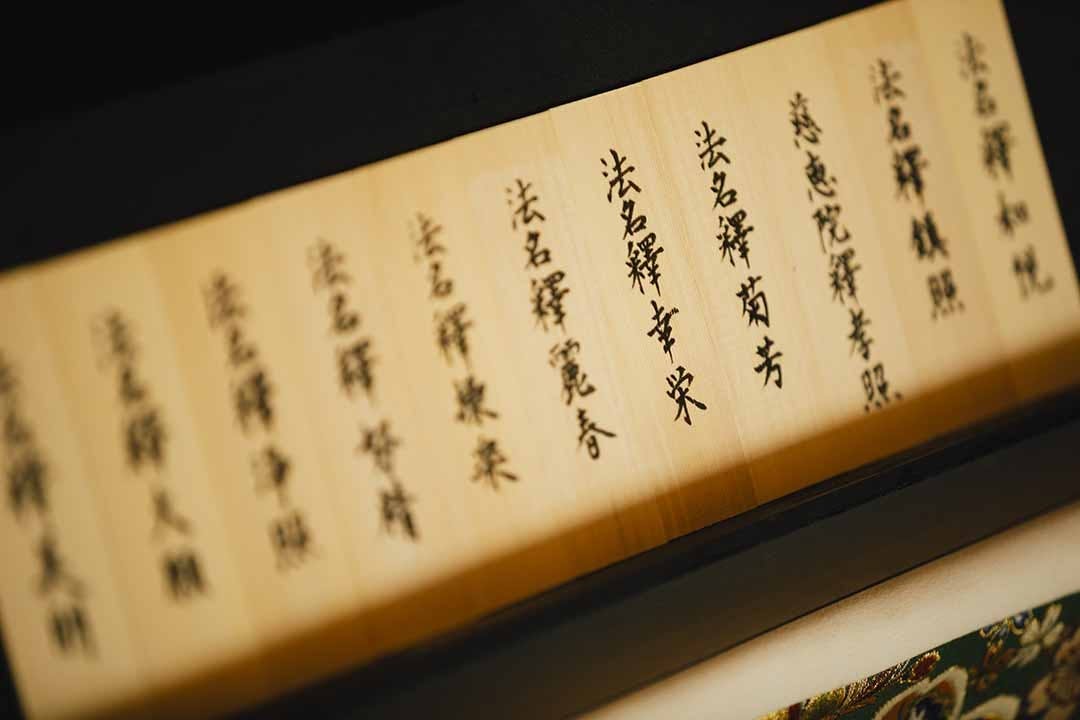 法名釋和悦
法名釋鎮照
慈恵院釋孝照
法名釋菊芳
法名釋幸栄
法名釋麗春
法名釋
法名釋
法名釋浄
法名釋
法名釋